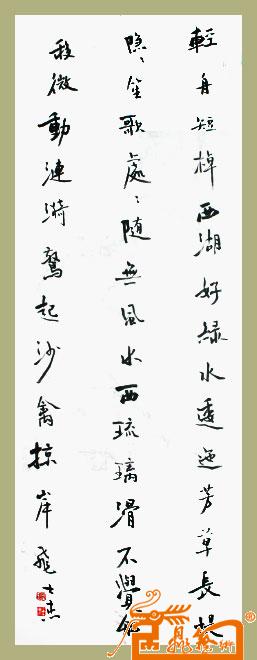 輕舟短棹西湖好綠水逶迤芳草長堤
隐〻笙歌處〻隨無風水面琉璃滑不覺船
移微動漣漪驚起沙禽掠岸飛